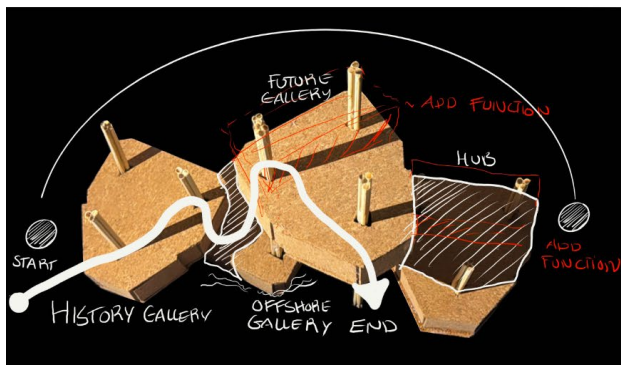 FUTURE
GALLERY
ADD FUNCTION
HUB
START
ADD
FUNCTION
HISTORY GALLERY
OFFSHORE
GALLERY
END